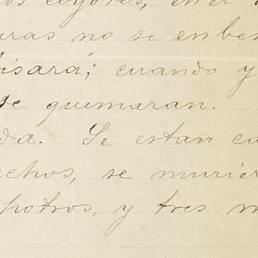 los coyotes, en el
uras no se en ben
isará; cuando y
se quemaran.
da. Se estan ca
echos, se murie
potros, y tres m